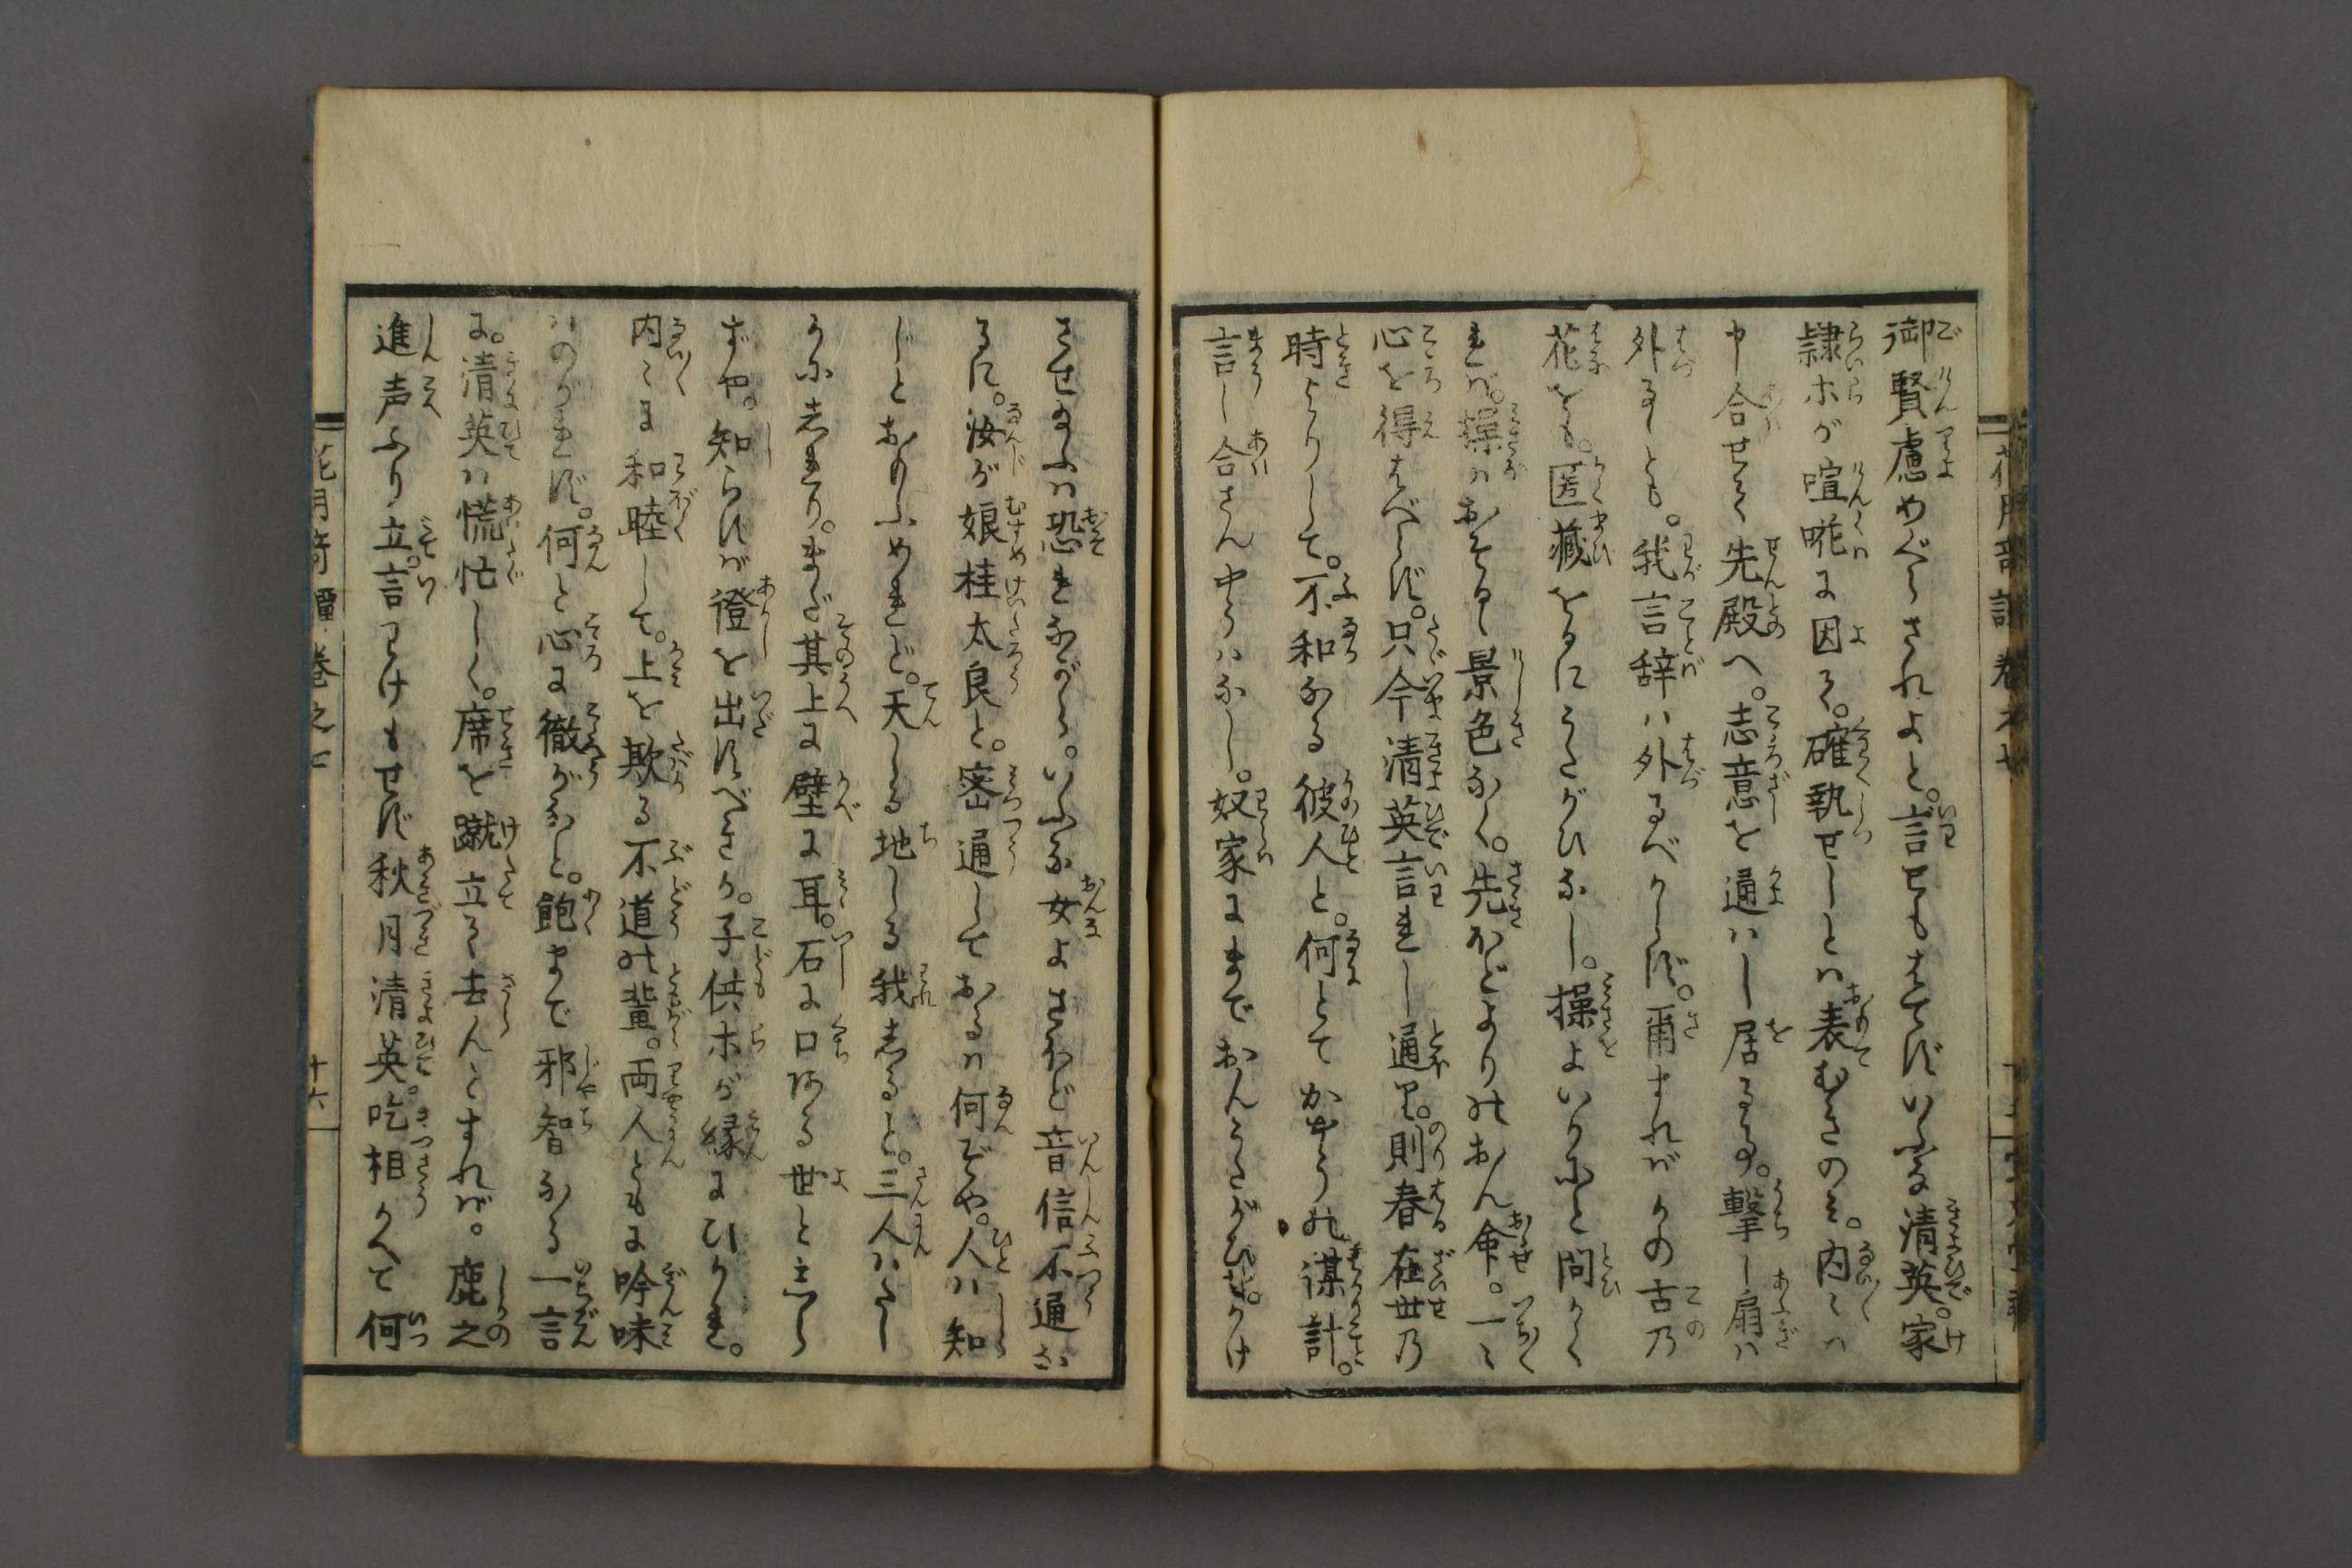 御賢慮めぐらされよと。言もはてずいふな清英。家
隷ホが喧𠵅に因て。確執せしとハ表むきのミ。内〻ハ
申合せて先殿へ。志意を通ハし居るな。撃し扇ハ
外るゝとも。我言辞ハ外るべからず。爾すれがかの古乃
花をも。匿蔵をるにうたがひなし。操よいかにと問かく
れバ。操ハおそるゝ景色なく。先ほどよりのおん命。一〻
心を得はべらず。只今清英言れし通り。則春在世乃
時よりして。不和なる彼人と。何とてかやうの謀計。
言し合さん中うハなし。奴家にまでおんうたがひせ。かけ
させ給ふハ恐れながら。いふな女よさほど音信不通な
るに。汝が娘桂太良と。密通しておるハ何ぞや。人ハ知
じとおもふめれど。天しる地しる我しると。三人ハたし
かに志れり。まだ其上に壁に耳。石に口ある世としら
ずや。知らずバ證を出すべきか。子供ホが縁にひかれ。
内〻に和睦して。上を欺る不道の輩。両人ともに吟味
ハのがれず。何と心に徹がなと。飽まで邪智なる一言
に。清英ハ慌忙しく。席を蹴立て去んとすれバ。鹿之
進声ふり立。言わけもせず秋月清英。吃相かへて何
花月奇譚 巻之七
十六